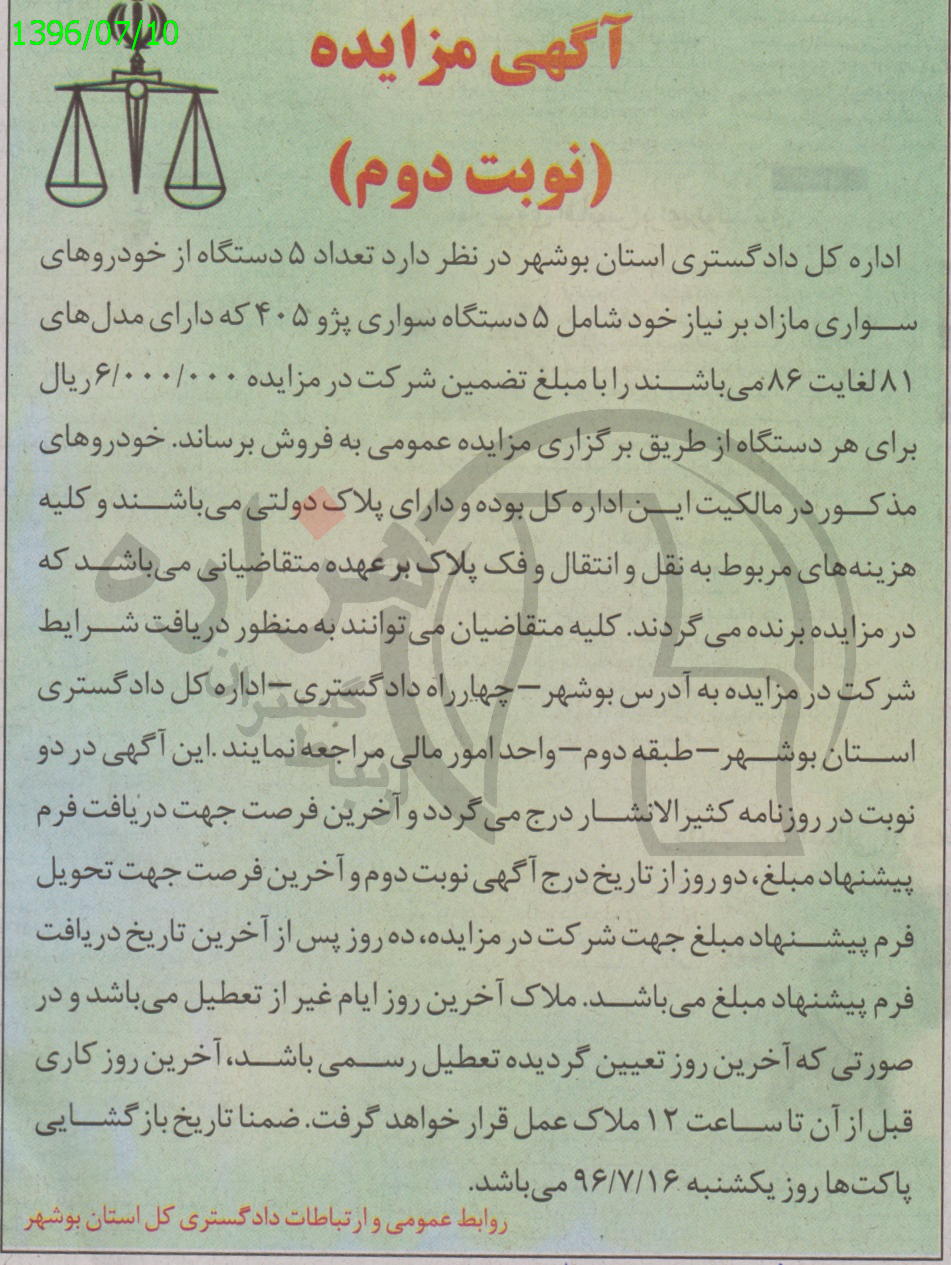 1396/07/10
آگهی مزایده
(نوبت دوم)
اداره کل دادگستری استان بوشهر در نظر دارد تعداد ۵ دستگاه از خودروهای
سواری مازاد بر نیاز خود شامل ۵ دستگاه سواری پژو ۴۰۵ که دارای مدل‌های
۸۱ لغایت ۸۶ می‌باشند را با مبلغ تضمین شرکت در مزایده ۶/۰۰۰/۰۰۰ ریال
برای هر دستگاه از طریق برگزاری مزایده عمومی به فروش برساند. خودروهای
مذکور در مالکیت این اداره کل بوده و دارای پلاک دولتی می‌باشند و کلیه
هزینه‌های مربوط به نقل و انتقال و فک پلاک بر عهده متقاضیانی می‌باشد که
در مزایده برنده می‌گردند. کلیه متقاضیان می‌توانند به منظور دریافت شرایط
شرکت در مزایده به آدرس بوشهر–چهارراه دادگستری–اداره کل دادگستری
استان بوشهر–طبقه دوم–واحد امور مالی مراجعه نمایند .این آگهی در دو
نوبت در روزنامه کثیرالانتشار درج می‌گردد و آخرین فرصت جهت دریافت فرم
پیشنهاد مبلغ، دو روز از تاریخ درج آگهی نوبت دوم و آخرین فرصت جهت تحویل
فرم پیشنهاد مبلغ جهت شرکت در مزایده، ده روز پس از آخرین تاریخ دریافت
فرم پیشنهاد مبلغ می‌باشد. ملاک آخرین روز ایام غیر از تعطیل می‌باشد و در
صورتی که آخرین روز تعیین گردیده تعطیل رسمی باشد، آخرین روز کاری
قبل از آن تا ساعت ۱۲ ملاک عمل قرار خواهد گرفت. ضمنا تاریخ بازگشایی
پاکت‌ها روز یکشنبه ۹۶/۷/۱۶ می‌باشد.
روابط عمومی و ارتباطات دادگستری کل استان بوشهر
هزاره